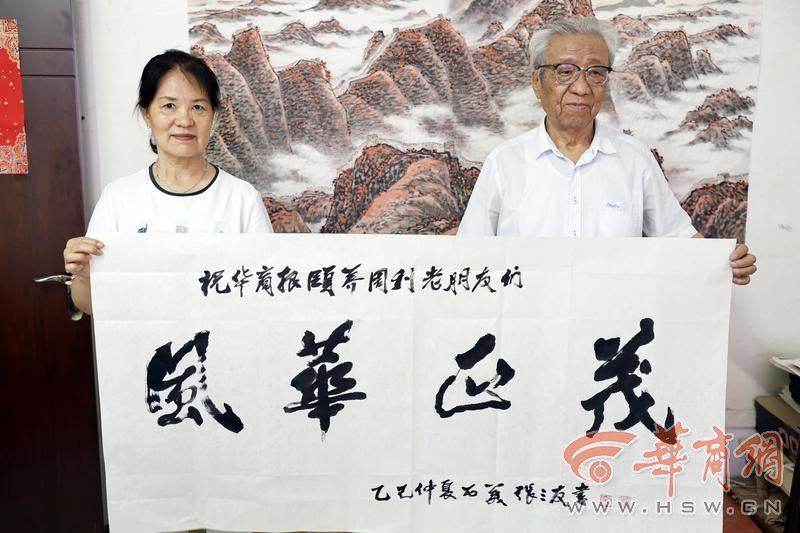 祝华商报颐养周刊老朋友们
風華正茂
乙巳仲夏
張三友書
華商網
WWW.HSW.CN